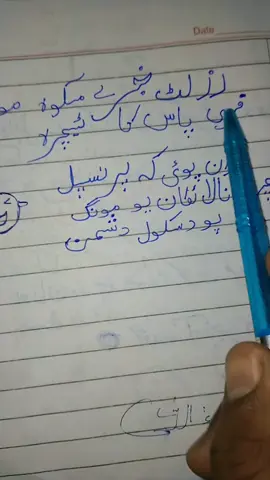 Date
رزلٹ خبرے مکوہ مو
فری پاس کا ٹیچرہ
ن پوئی کہ پرنسپل
نالائقان یو مونگ
یو د سکول دشمن